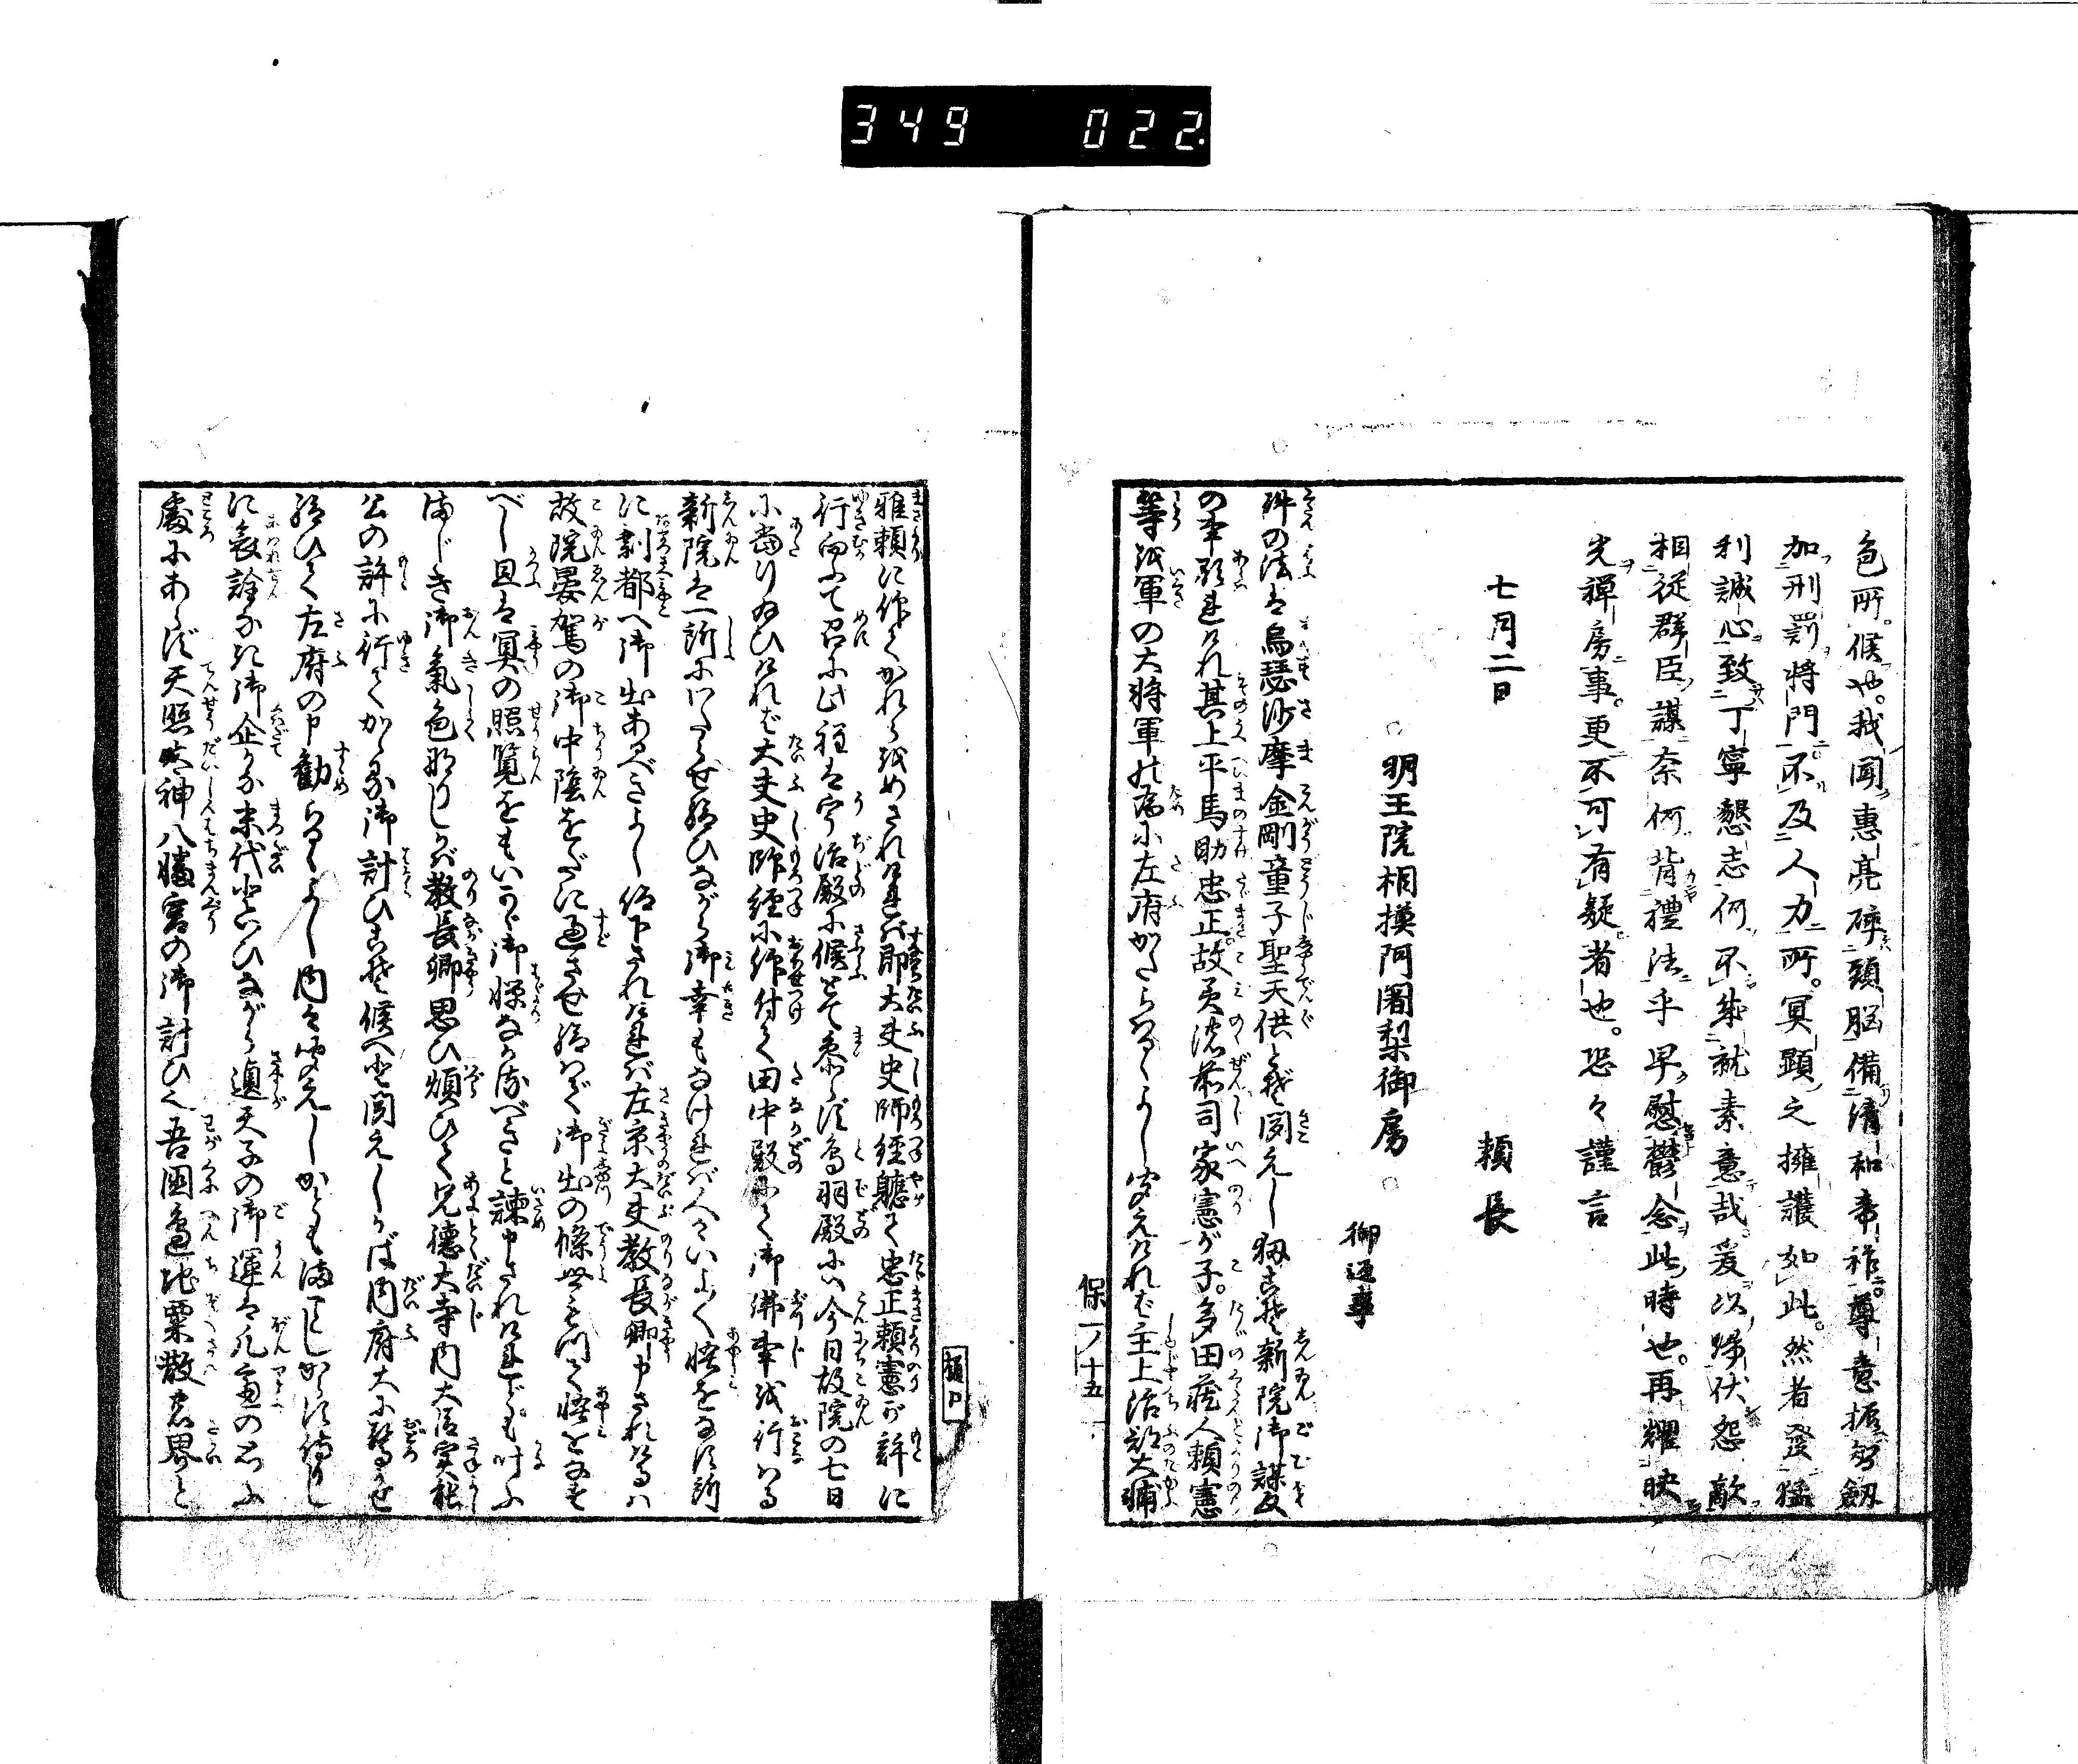 349 022
色所候也。我聞惠亮碎頭脳備清和帝祚。尊意振智劔
加刑罰将門不及人力所。冥顕之擁護如此。然者發猛
利誠心致丁寧懇志何不果就素意哉。爰以降伏怨敵
相従群臣謀奈何背禮法乎早慰鬱念此時也。再耀映
光禅房事。更不可有疑者也。恐々謹言
七月二日
頼長
明王院相模阿闍梨御房
御返事
件の法は烏瑟沙摩金剛童子聖天供とぞ聞えし扨こそ新院御謀反
の事顕はれけれ其上平馬助忠正。故美濃前司家憲が子。多田蔵人頼憲
等を軍の大将軍の為に左府かたらはるゝよし聞えければ主上治部大輔
保一ノ十五
樋口
雅頼に仰てかれらをめされければ即大夫史師経聴て忠正頼憲が許に
行向ふて召に此程は宇治殿に候とて参らず鳥羽殿には今日故院の七日
に当り給ひければ大夫史師経に仰付て田中殿にて御佛事を行はる
新院は一所にわたらせ給ひながら御幸もなければ人々いよ〳〵怪をなす所
に剰都へ御出あるべきよし仰下されければ左京大夫教長卿申されけるは
故院晏駕の御中陰をだに過させ給はで御出の條世もつて怪をなす
べし且は冥の照覧をもいかで御憚なかるべきと諫申されけれども叶ふ
まじき御氣色なりしかば教長卿思ひ煩ひて兄徳大寺内大臣実能
公の許に行てかゝる御計ひこそ候へと聞えしかば内府大に驚かせ
給ひて左府の申勧らるゝよし内々聞えしかどもまことしからず侍りし
に哀詮なき御企かな末代といひながら適天子の御運は凡慮の至ふ
處にあらず天照大神八幡宮の御計ひ也吾国邊地粟散の界と